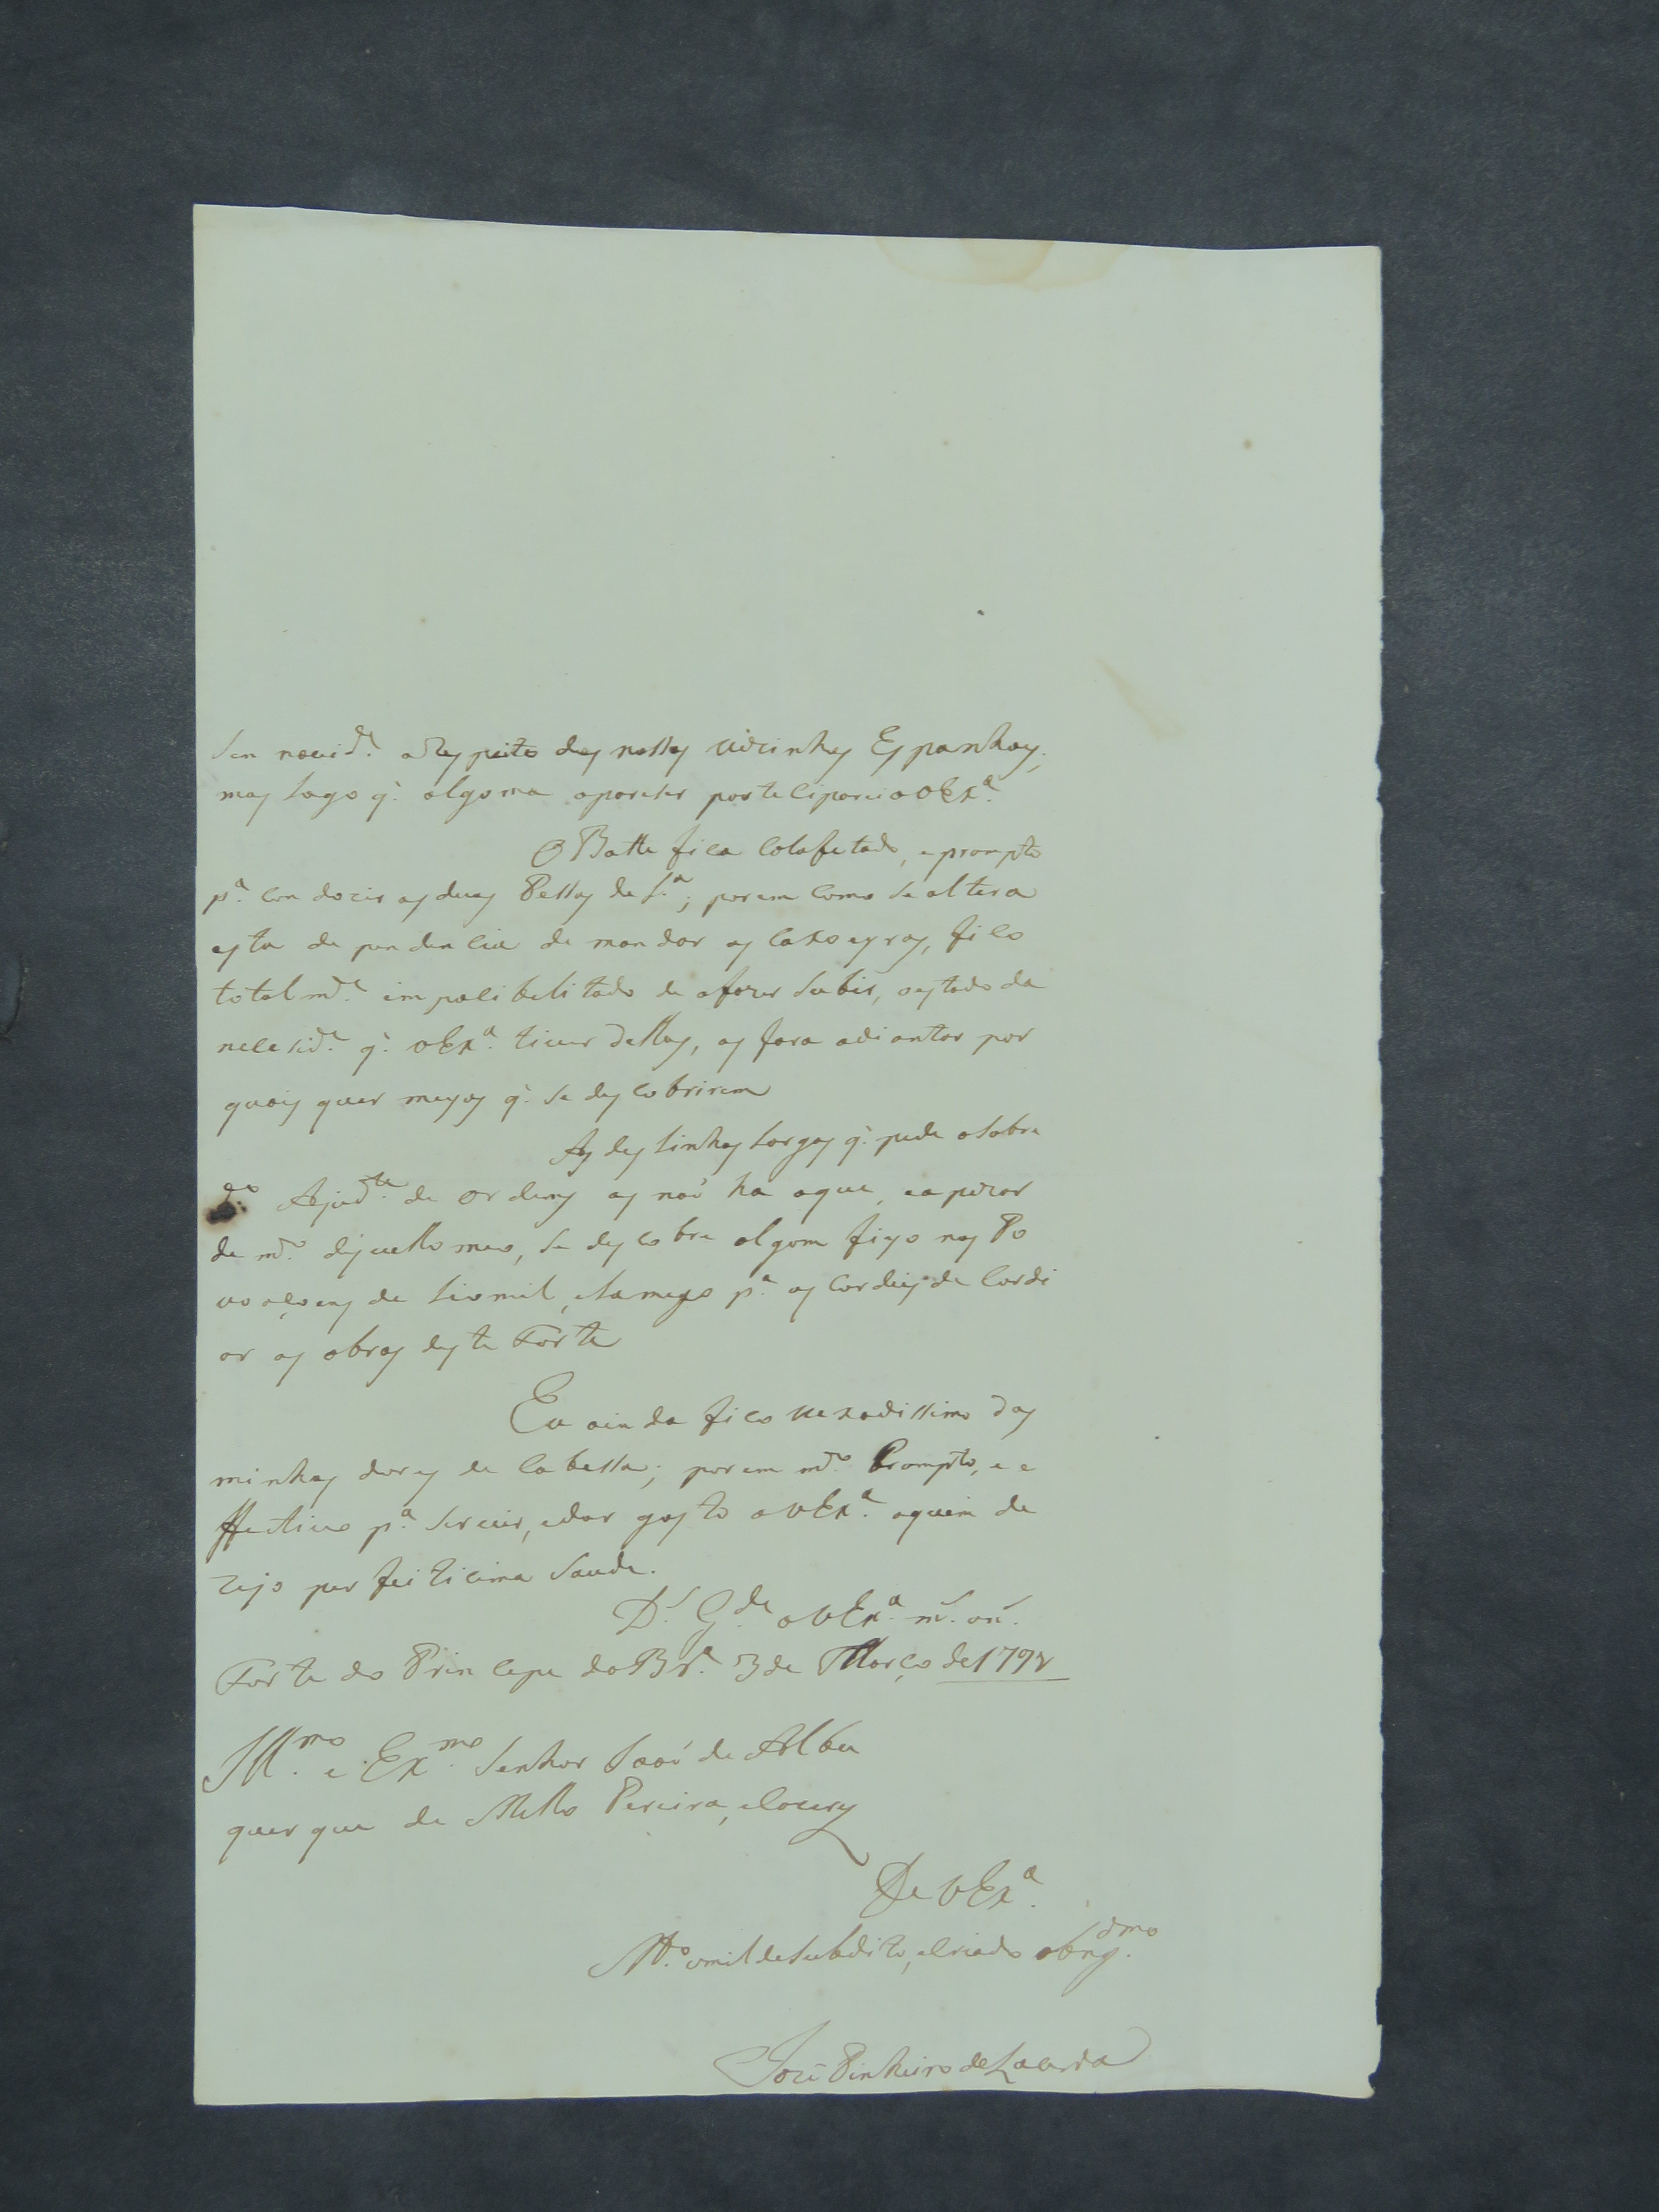 sem novid.e a Respeito dos nossos vizinhos Espanhoes,
mas logo q̃. algoma apareser parteciparei a V Ex.a
O Batte fica Calafetado, e prompto
p.a con dozir as duas Pessas de S.a; porem como se altera
esta de pendencia de mandar as caxoeyras, fico
total m.te impocibelitado de afazer subir, o estado da
necesid.e q̃. V Ex.a tiver dellas, as fara adiantar por
quais quer meyos q̃. se descobrirem
As des linhas largas q̃. pede o sobre
d.o Ajud.te de ordens as naõ ha aque, e a pezar
de m.to disvello meo, se descobre algom fiyo nas Po
voaçoens de Liomil, e Lamego p.a as cordeis de Cordi
ar as obras deste Forte
Eu ainda fico vexadissimo das
minhas dores de Cabessa; porem m.to Prompto, e e
ffectivo p.a servir, e dar gosto a V Ex.a a quem de
zejo per feiticima Saude.
D.s G.de a V Ex.a m.s an.s
Forte do Principe da B.ra 3 de Março de 1792
Ill.mo e Ex.mo Senhor Joaõ de Albu
quer que de Mello Pereira, e Caceres
De V Ex.a
M.to omilde Subdito, e criado obrig.dmo
Jozé Pinheiro de Lacerda